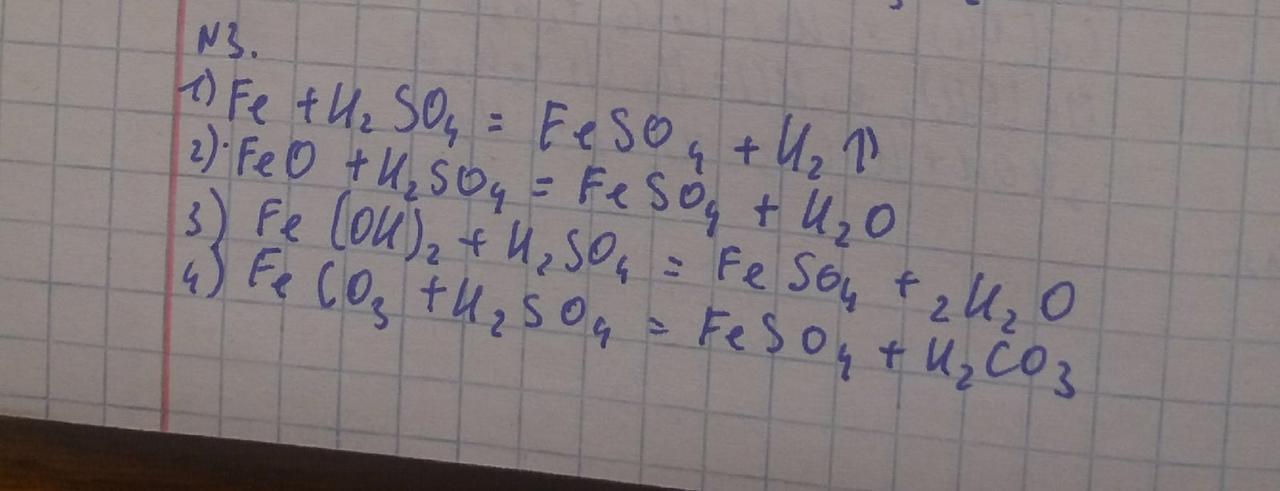 N3.
1) Fe + H₂SO₄ = FeSO₄ + H₂↑
2) FeO + H₂SO₄ = FeSO₄ + H₂O
3) Fe(OH)₂ + H₂SO₄ = FeSO₄ + 2H₂O
4) FeCO₃ + H₂SO₄ = FeSO₄ + H₂CO₃